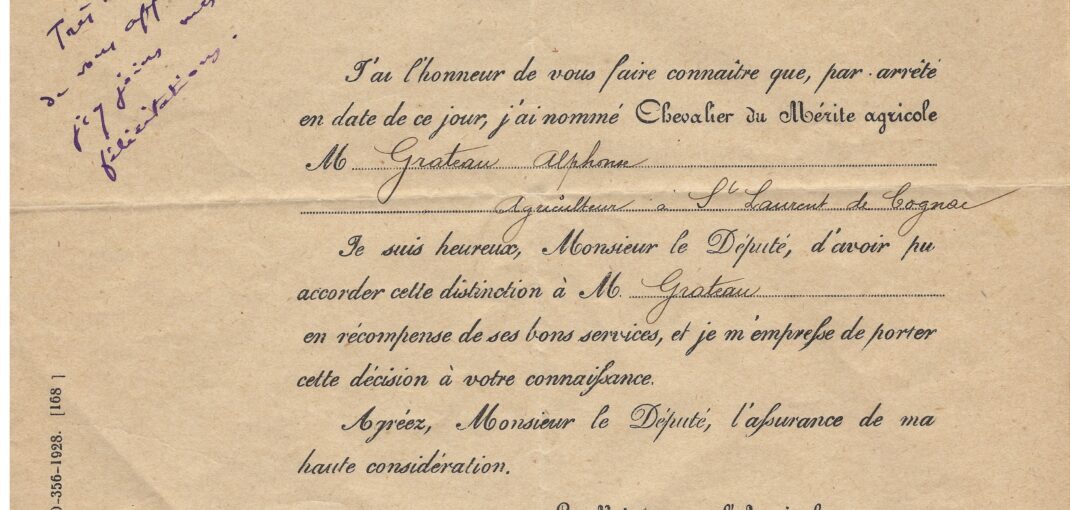 Très
de vous
j'y joins mes
félicitations.
J'ai l'honneur de vous faire connaître que, par arrêté
en date de ce jour, j'ai nommé Chevalier du Mérite agricole
M Grateau Alphonse
Agriculteur à St Laurent de Cognac
Je suis heureux, Monsieur le Député, d'avoir pu
accorder cette distinction à M. Grateau
en récompense de ses bons services, et je m'empresse de porter
cette décision à votre connaissance.
Agréez, Monsieur le Député, l'assurance de ma
haute considération.
-356-1928. [168]